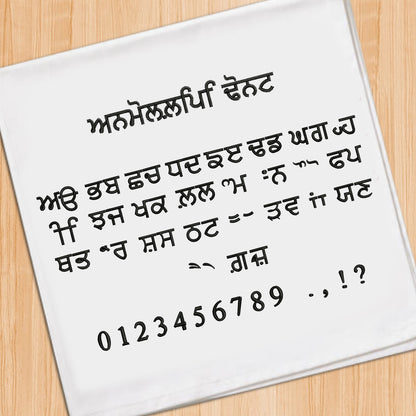 ਅਨਮੋਲਲਿਪਿ ਫੋਨਟ
ਅੳ ਭਬ ਛਚ ਧਦ ਙੲ ਢਡ ਘਗ ਹ
ੀ ਿ ਝਜ ਖਕ ਲ਼ਲ ੰਮ ਂਨ ੈ ੇ ਫਪ
ਥਤ ੍ਰਰ ਸ਼ਸ ਠਟ ੂ ੁ ੜਵ ਯਣ
ੌ ੋ ਗ਼ਜ਼
0123456789 .,!?